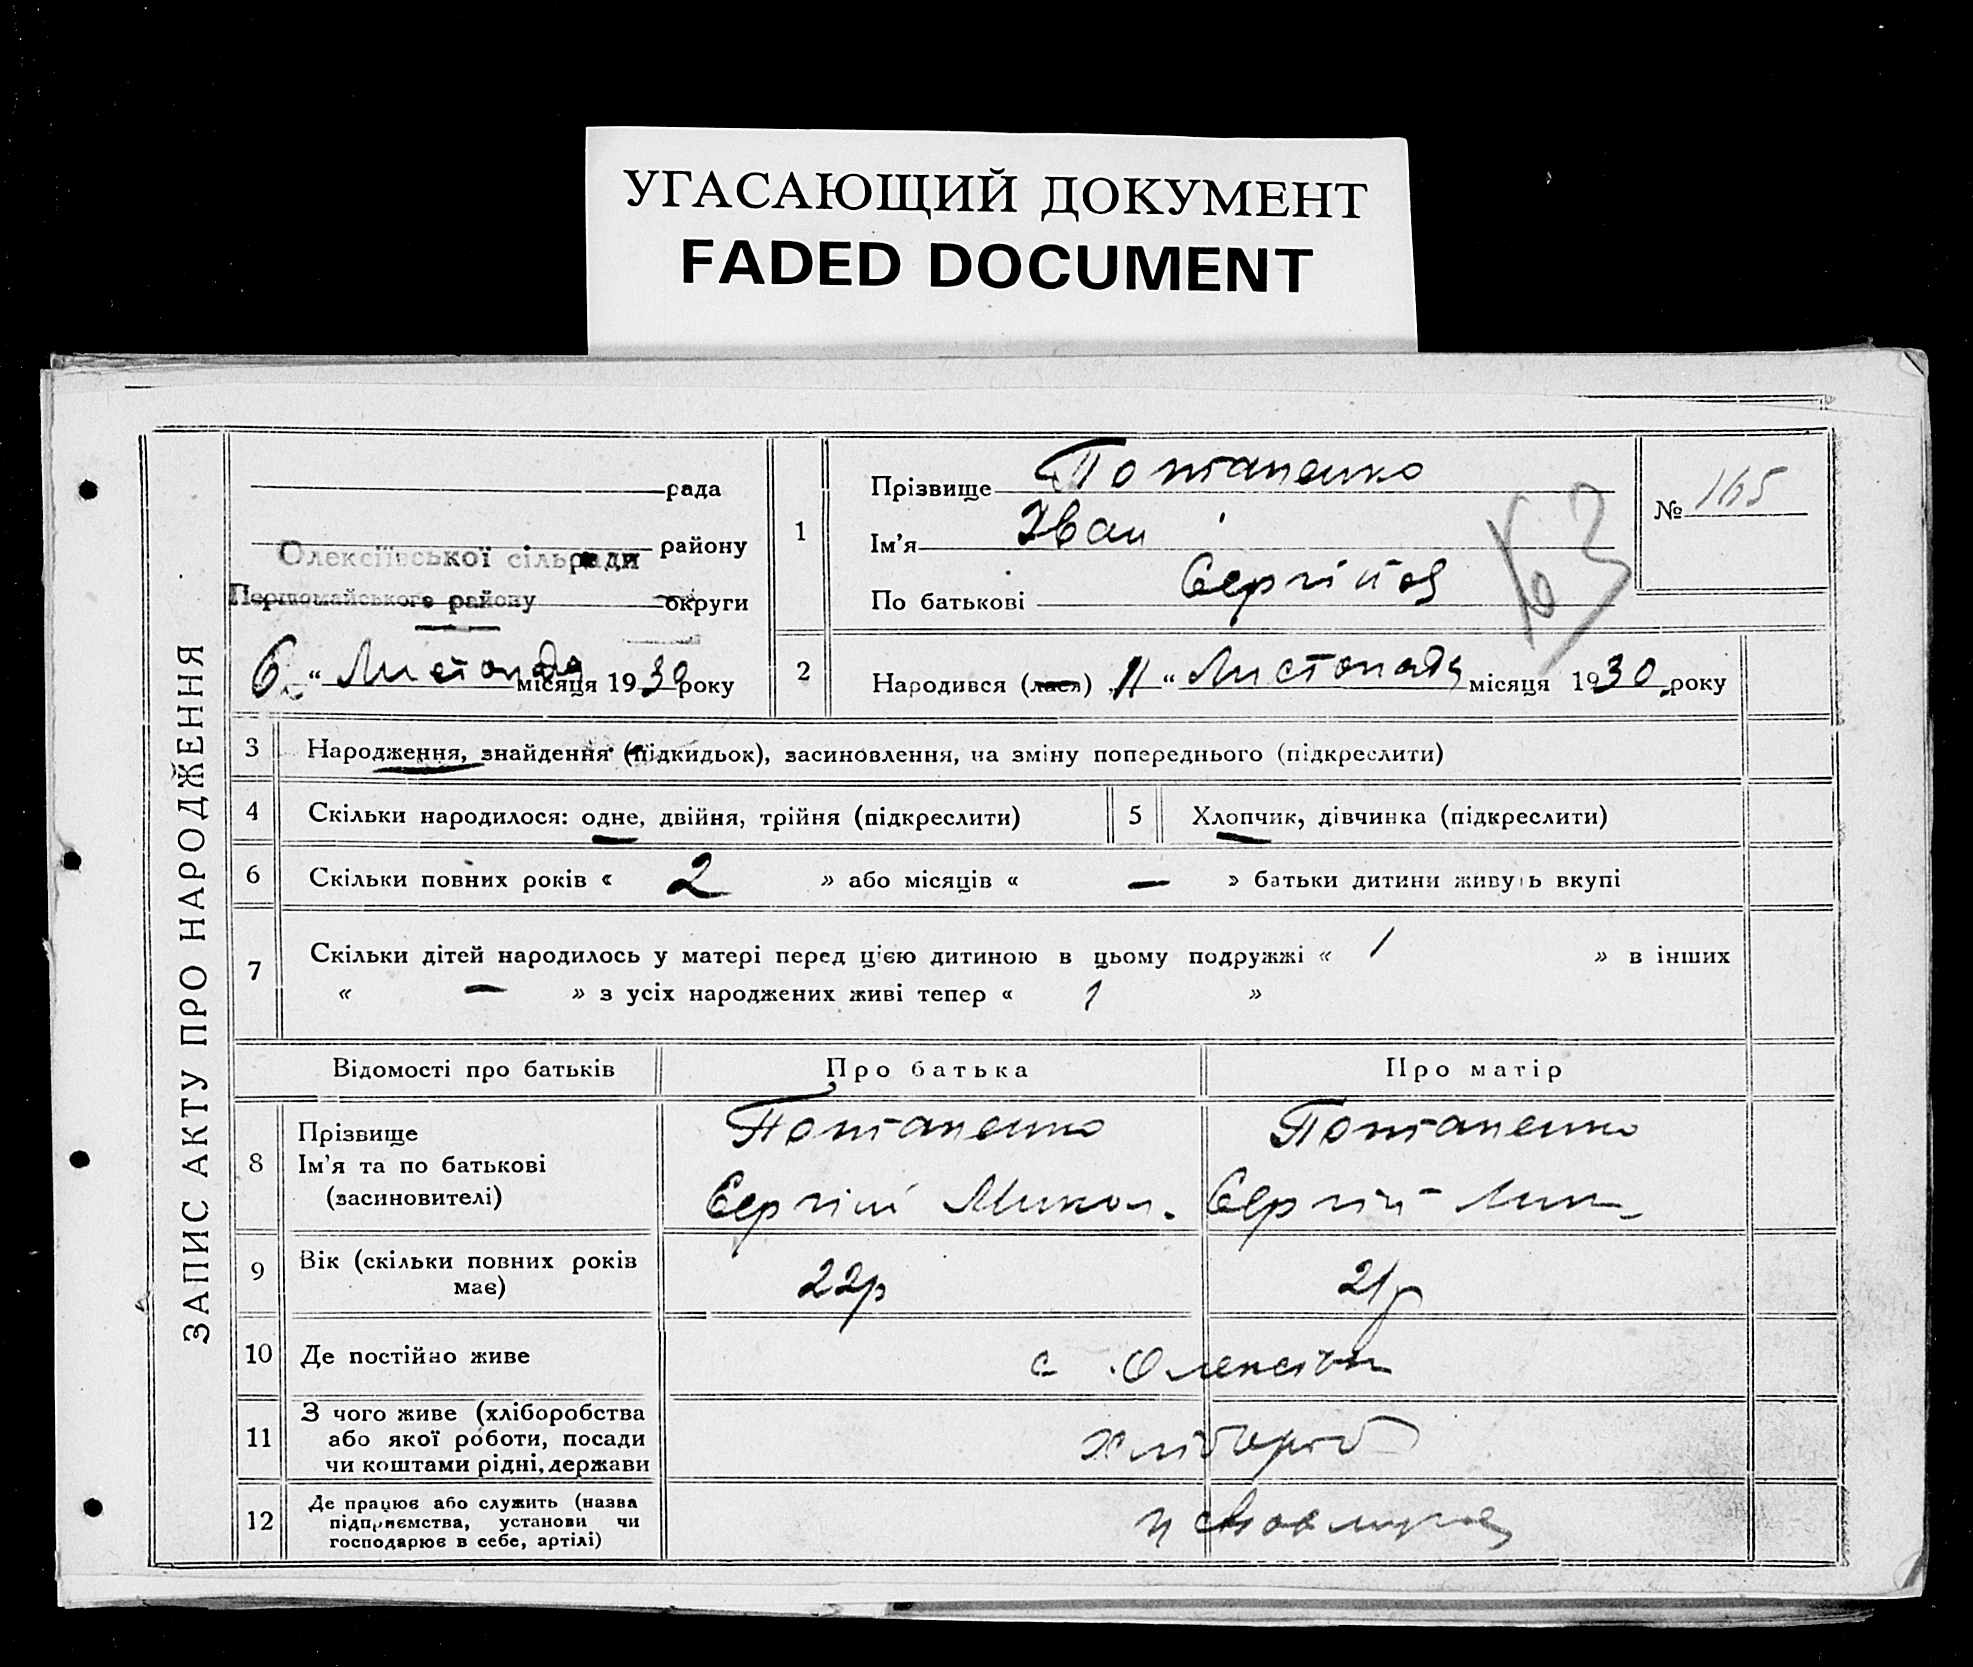 УГАСАЮЩИЙ ДОКУМЕНТ
FADED DOCUMENT
ЗАПИС АКТУ ПРО НАРОДЖЕННЯ
рада
району
Олексіївської сільради
Первомайського району
округи
6 “ Листопада місяця 1930 року
1
Прізвище Потапенко
Ім'я Іван
По батькові Сергійов
№ 165
63
2
Народився (лася) „ 11 “ Листопада місяця 1930 року
3 Народження, знайдення (підкидьок), засиновлення, на зміну попереднього (підкреслити)
4 Скільки народилося: одне, двійня, трійня (підкреслити)
5 Хлопчик, дівчинка (підкреслити)
6 Скільки повних років « 2 » або місяців « — » батьки дитини живуть вкупі
7 Скільки дітей народилось у матері перед цією дитиною в цьому подружжі « 1 » в інших
« — » з усіх народжених живі тепер « 1 »
Відомості про батьків Про батька Про матір
8 Прізвище Потапенко Потапенко
Ім'я та по батькові
(засиновителі) Сергій Микол. Сергій
9 Вік (скільки повних років
має) 22р 21р
10 Де постійно живе с. Олексіївк
11 З чого живе (хліборобства
або якої роботи, посади
чи коштами рідні, держави Хлібороб
12 Де працює або служить (назва
підприємства, установи чи
господарює в себе, артілі)